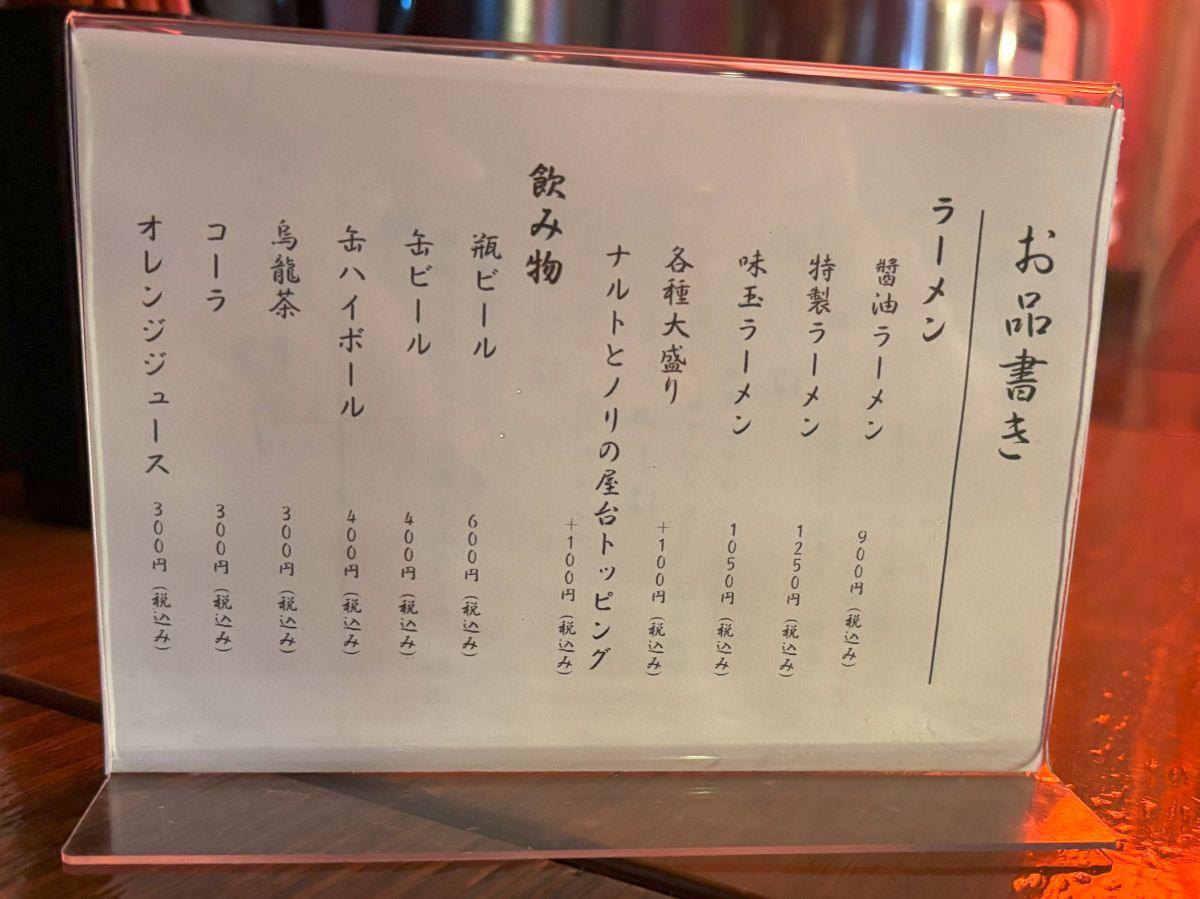 お品書き
ラーメン
醤油ラーメン 900円（税込み）
特製ラーメン 1250円（税込み）
味玉ラーメン 1050円（税込み）
各種大盛り +100円（税込み）
ナルトとノリの屋台トッピング
+100円（税込み）
飲み物
瓶ビール 600円（税込み）
缶ビール 400円（税込み）
缶ハイボール 400円（税込み）
烏龍茶 300円（税込み）
コーラ 300円（税込み）
オレンジジュース 300円（税込み）